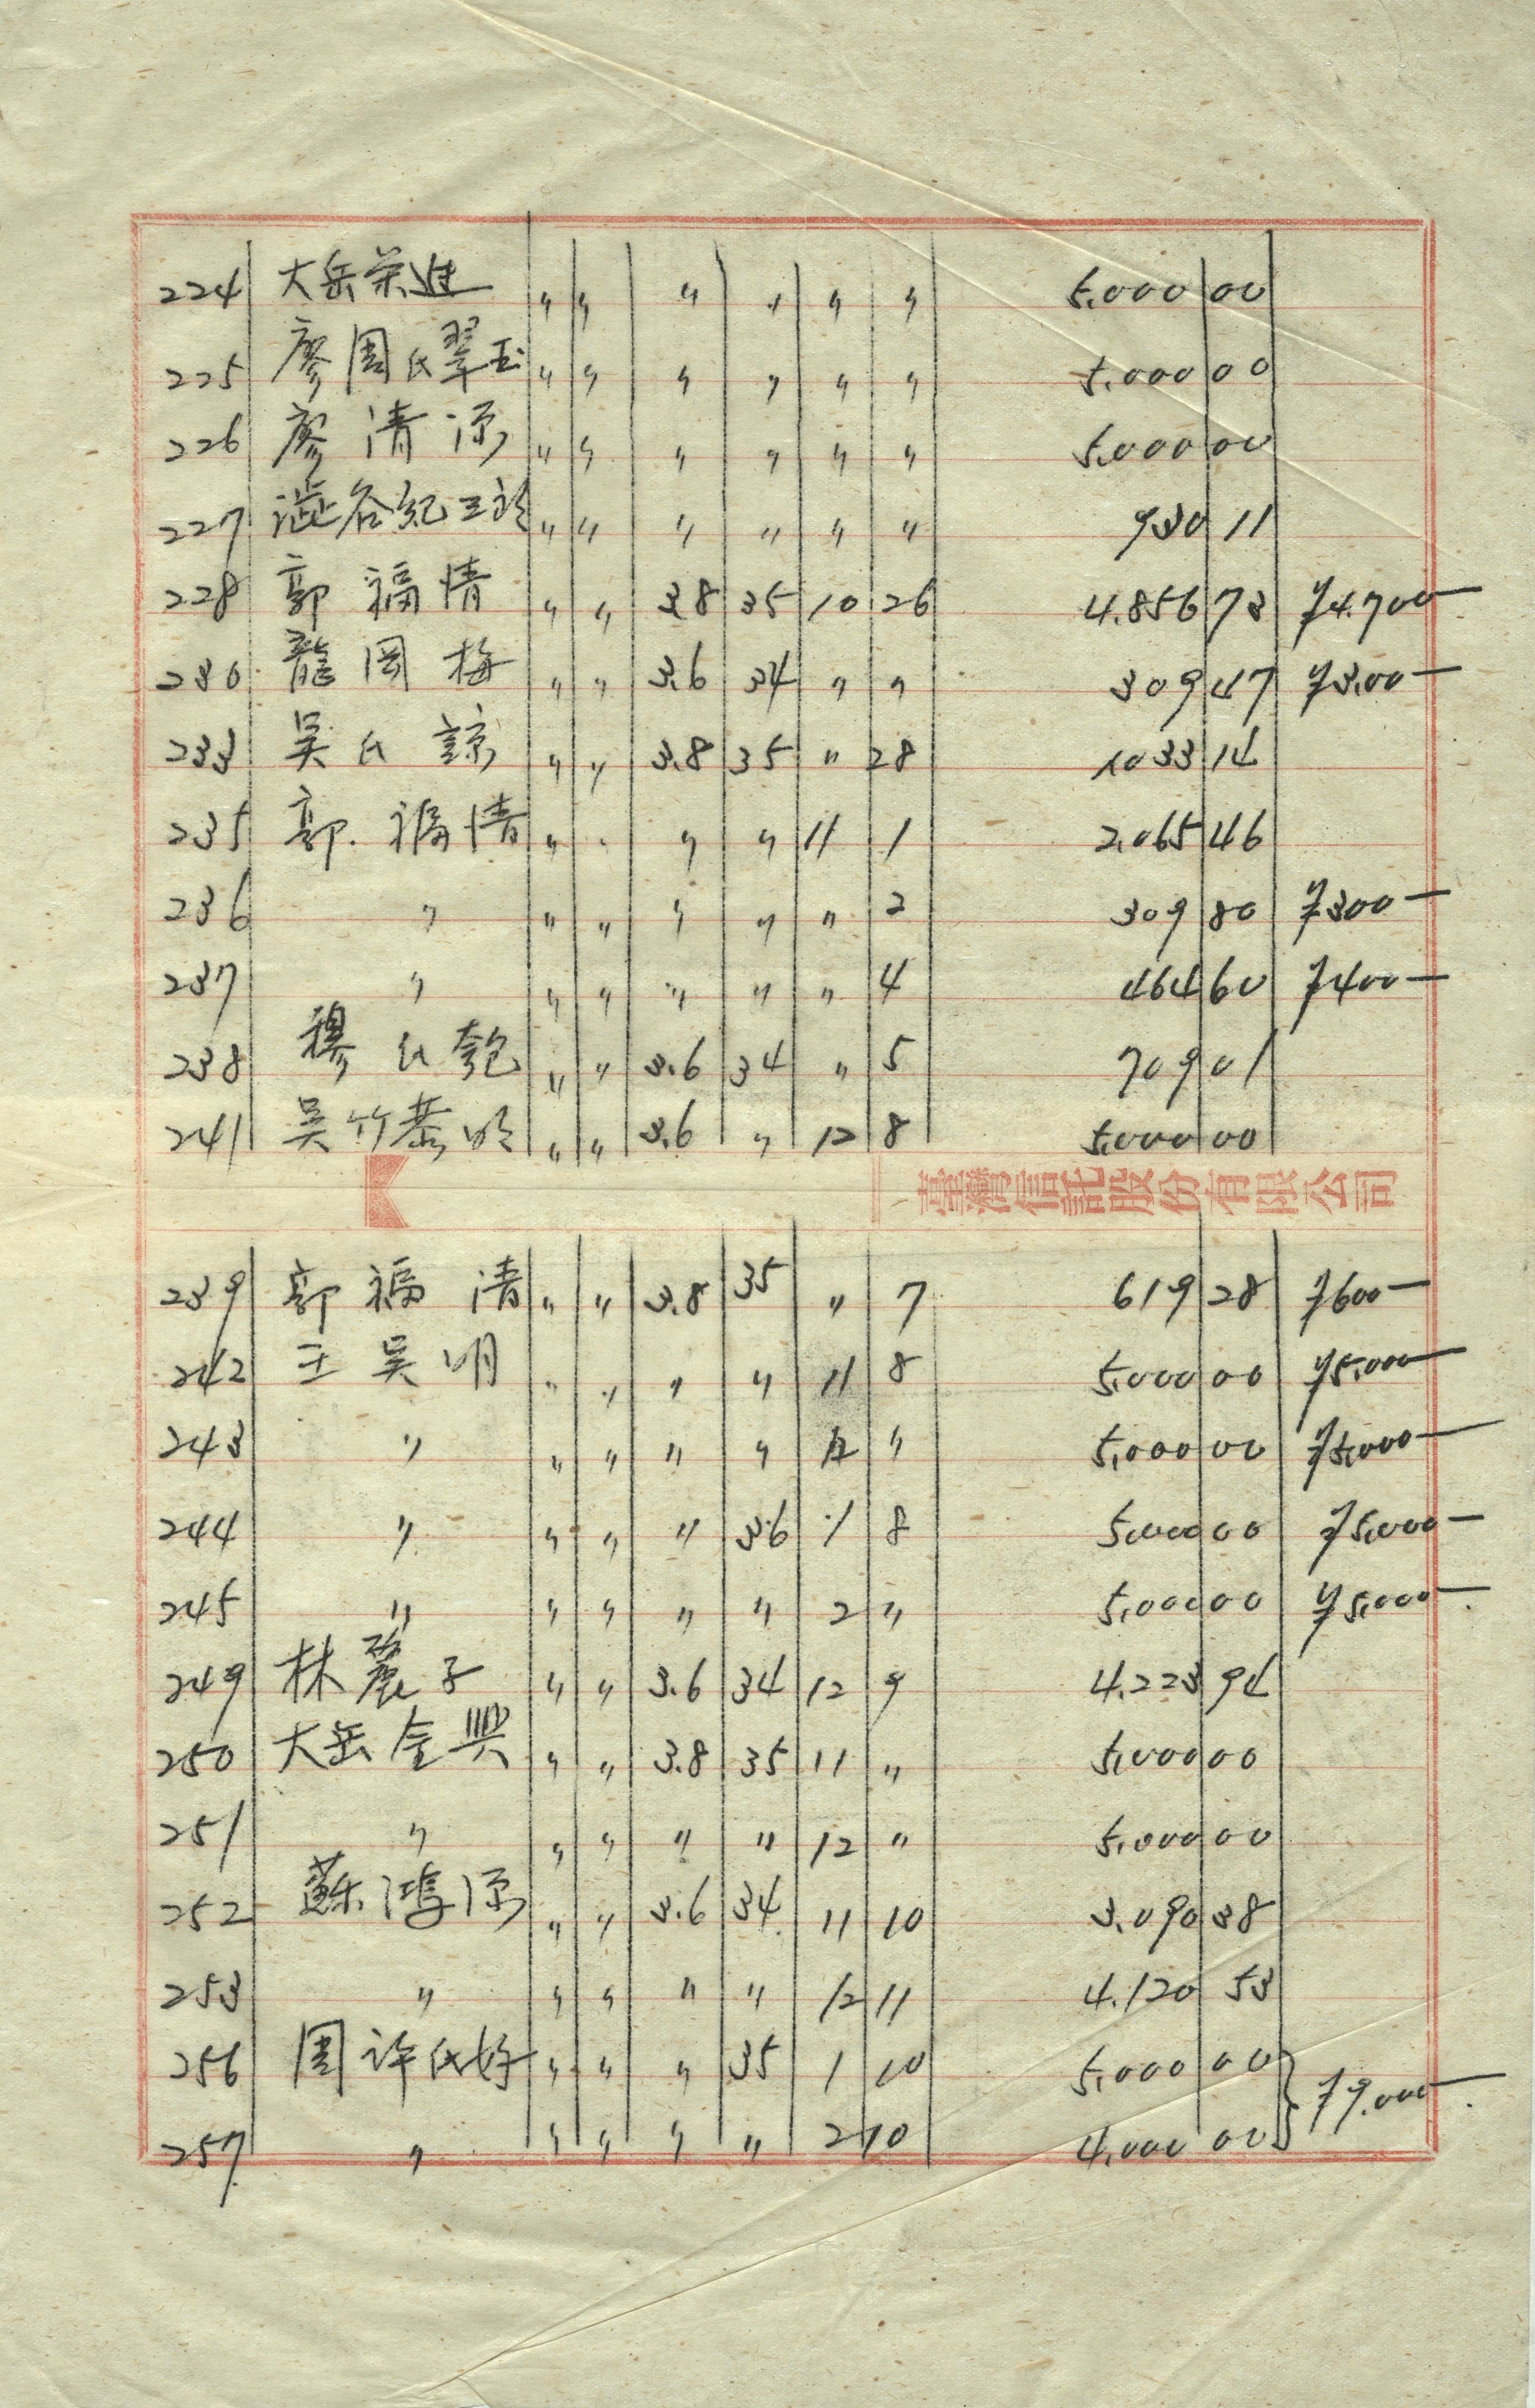 224 大岳荣進 〃 〃 〃 〃 〃 〃 5,000 00
225 廖周氏翠玉 〃 〃 〃 〃 〃 〃 5,000 00
226 廖清源 〃 〃 〃 〃 〃 〃 5,000 00
227 澁谷紀三郎 〃 〃 〃 〃 〃 〃 930 11
228 郭福情 〃 〃 3.8 35 10 26 4.856 73 ¥4.700—
230 龍岡梅 〃 〃 3.6 34 〃 〃 309 47 ¥3.00—
233 吴氏諒 〃 〃 3.8 35 〃 28 1033 14
235 郭.福情 〃 〃 〃 〃 11 1 2,065 46
236 〃 〃 〃 〃 〃 〃 2 309 80 ¥300—
237 〃 〃 〃 〃 〃 〃 4 464 60 ¥400—
238 穆氏匏 〃 〃 3.6 34 〃 5 709 01
241 吴竹恭明 〃 〃 3.6 〃 12 8 5,000 00
臺灣信託股份有限公司
239 郭福清 〃 〃 3.8 35 〃 7 619 28 ¥600—
242 王吴明 〃 〃 〃 〃 11 8 5,000 00 ¥5,000—
243 〃 〃 〃 〃 〃 12 〃 5,000 00 ¥5,000—
244 〃 〃 〃 〃 36 1 8 5,000 00 ¥5,000—
245 〃 〃 〃 〃 〃 2 〃 5,000 00 ¥5,000—
249 林麗子 〃 〃 3.6 34 12 9 4.223 94
250 大岳金興 〃 〃 3.8 35 11 〃 5,000 00
251 〃 〃 〃 〃 〃 12 〃 5,000 00
252 蘇鴻源 〃 〃 3.6 34 11 10 3.090 38
253 〃 〃 〃 〃 〃 12 11 4.120 53
256 周许氏好 〃 〃 〃 35 1 10 5,000 00
257 〃 〃 〃 〃 〃 2 10 4,000 00 ¥9.000—